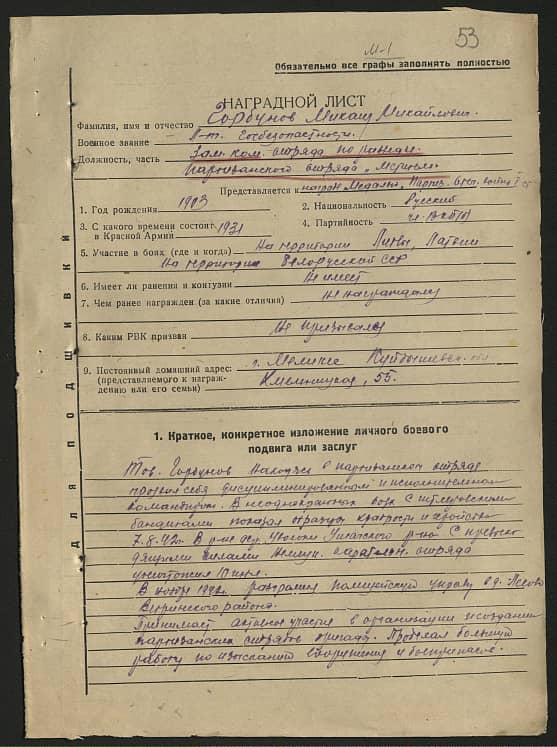 М-1
53
Обязательно все графы заполнять полностью
НАГРАДНОЙ ЛИСТ
Фамилия, имя и отчество Горбунов Михаил Михайлович.
Военное звание Л-т. Госбезопастности.
Должность, часть Зам. ком. отряда по разведк.
партизанского отряда
Представляется к наград. Медалью, Партиз. Отеч. войны I ст
1. Год рождения 1903
2. Национальность Русский
3. С какого времени состоит в Красной Армии 1931
4. Партийность чл. ВКП(б)
5. Участие в боях (где и когда) На территории Литвы, Латвии
На территории Белорусской ССР
6. Имеет ли ранения и контузии Не имеет
7. Чем ранее награжден (за какие отличия) Не награждался
8. Каким РВК призван Не призывался
9. Постоянный домашний адрес: г. Мелекес Куйбышевск. обл.
(представляемого к награж-
дению или его семьи) Хмельницкая, 55.
для подшивки
1. Краткое, конкретное изложение личного боевого
подвига или заслуг
Тов. Горбунов находясь в партизанском отряде
проявил себя дисциплинированным и исполнительным
командиром. В неоднократных боях с гитлеровскими
бандитами показал образцы храбрости и геройства
7.8.42г. В р-не дер. Ушачского р-на с превосхо
дящими силами немецк. карательн. отряда
уничтожил
В ноябре 1942г. разгромил полицейскую управу в д.
Ветринского района.
Принимает активное участие в организации и создании
партизанских отрядов бригады. Проделал большую
работу по изысканию вооружения и боеприпасов.